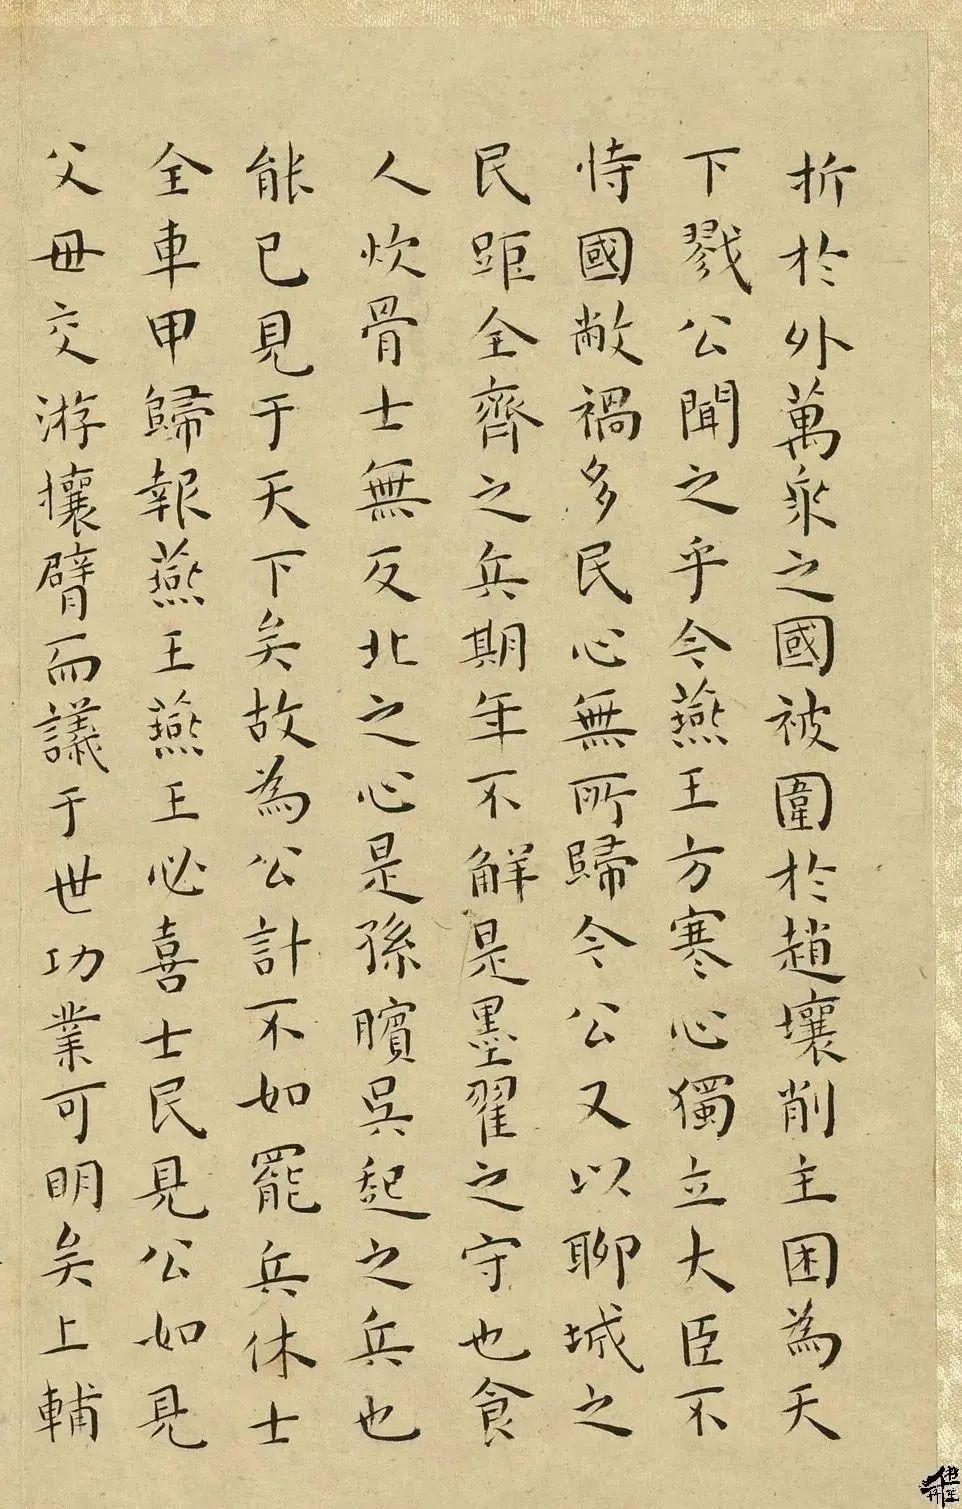 折於外萬衆之國被圍於趙壤削主困為天
下戮公聞之乎今燕王方寒心獨立大臣不
恃國敝禍多民心無所歸今公又以聊城之
民距全齊之兵期年不解是墨翟之守也食
人炊骨士無反北之心是孫臏吳起之兵也
能已見于天下矣故為公計不如罷兵休士
全車甲歸報燕王燕王必喜士民見公如見
父毌交游攘臂而議于世功業可明矣上輔